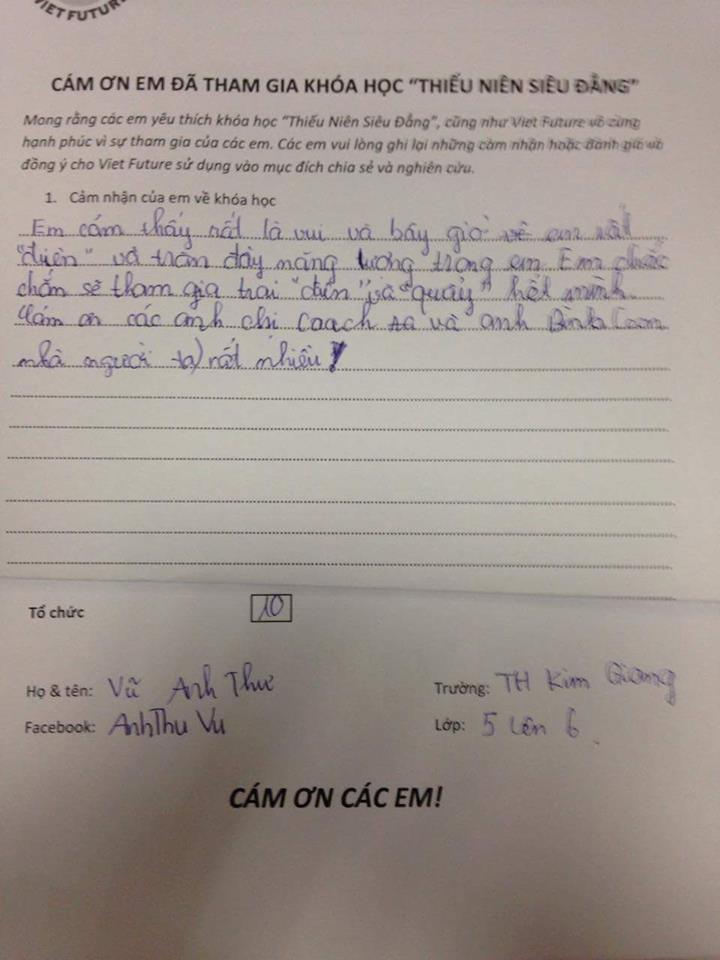 VIET FUTURE
CÁM ƠN EM ĐÃ THAM GIA KHÓA HỌC "THIẾU NIÊN SIÊU ĐẲNG"
Mong rằng các em yêu thích khóa học "Thiếu Niên Siêu Đẳng", cũng như Viet Future vô cùng
hạnh phúc vì sự tham gia của các em. Các em vui lòng ghi lại những cảm nhận hoặc đánh giá và
đồng ý cho Viet Future sử dụng vào mục đích chia sẻ và nghiên cứu.
1. Cảm nhận của em về khóa học
Em cám thấy rất là vui và bây giờ về em rất
"điên" và tràn đầy năng lượng trong em Em chắc
chắn sẽ tham gia trai "điên" và "quẩy" hết mình.
Cám ơn các anh chi Coach và anh Bình Coon
nhà người ta) rất nhiều!
Tổ chức 10
Họ & tên: Vũ Anh Thư Trường: TH Kim Giang
Facebook: AnhThu Vu Lớp: 5 lên 6
CÁM ƠN CÁC EM!